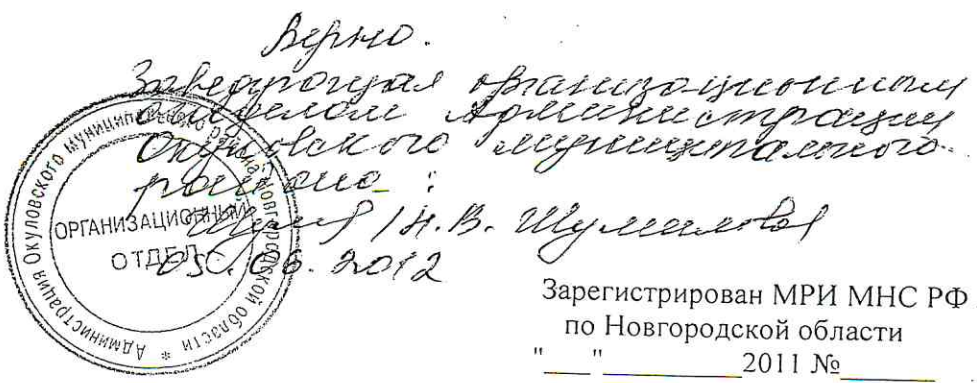 Верно.
Заведующая организационным
отделом Администрации
Окуловского муниципального
района:
/Н.В. Шумилова/
05.06.2012
Администрация Окуловского муниципального района Новгородской области *
ОРГАНИЗАЦИОННЫЙ
ОТДЕЛ
Зарегистрирован МРИ МНС РФ
по Новгородской области
"___"_________2011 №_______